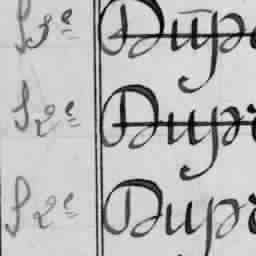 S 3e Dupo
S 2e Dupr
S 2e Dupr